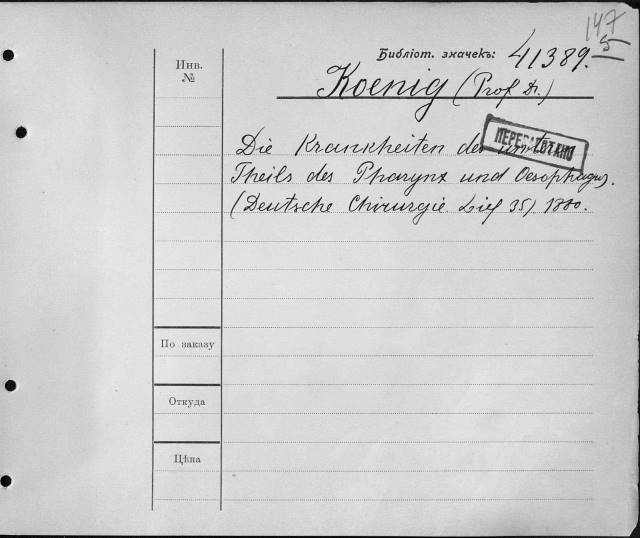 147
5
Библіот. значекъ: 41389.
Инв.
№
Koenig (Prof Dr.)
ПЕРЕРАБОТАНО
Die Krankheiten des unteren
Theils des Pharynx und Oesophagus.
(Deutsche Chirurgie Lief 35). 1880.
По заказу
Откуда
Цѣна